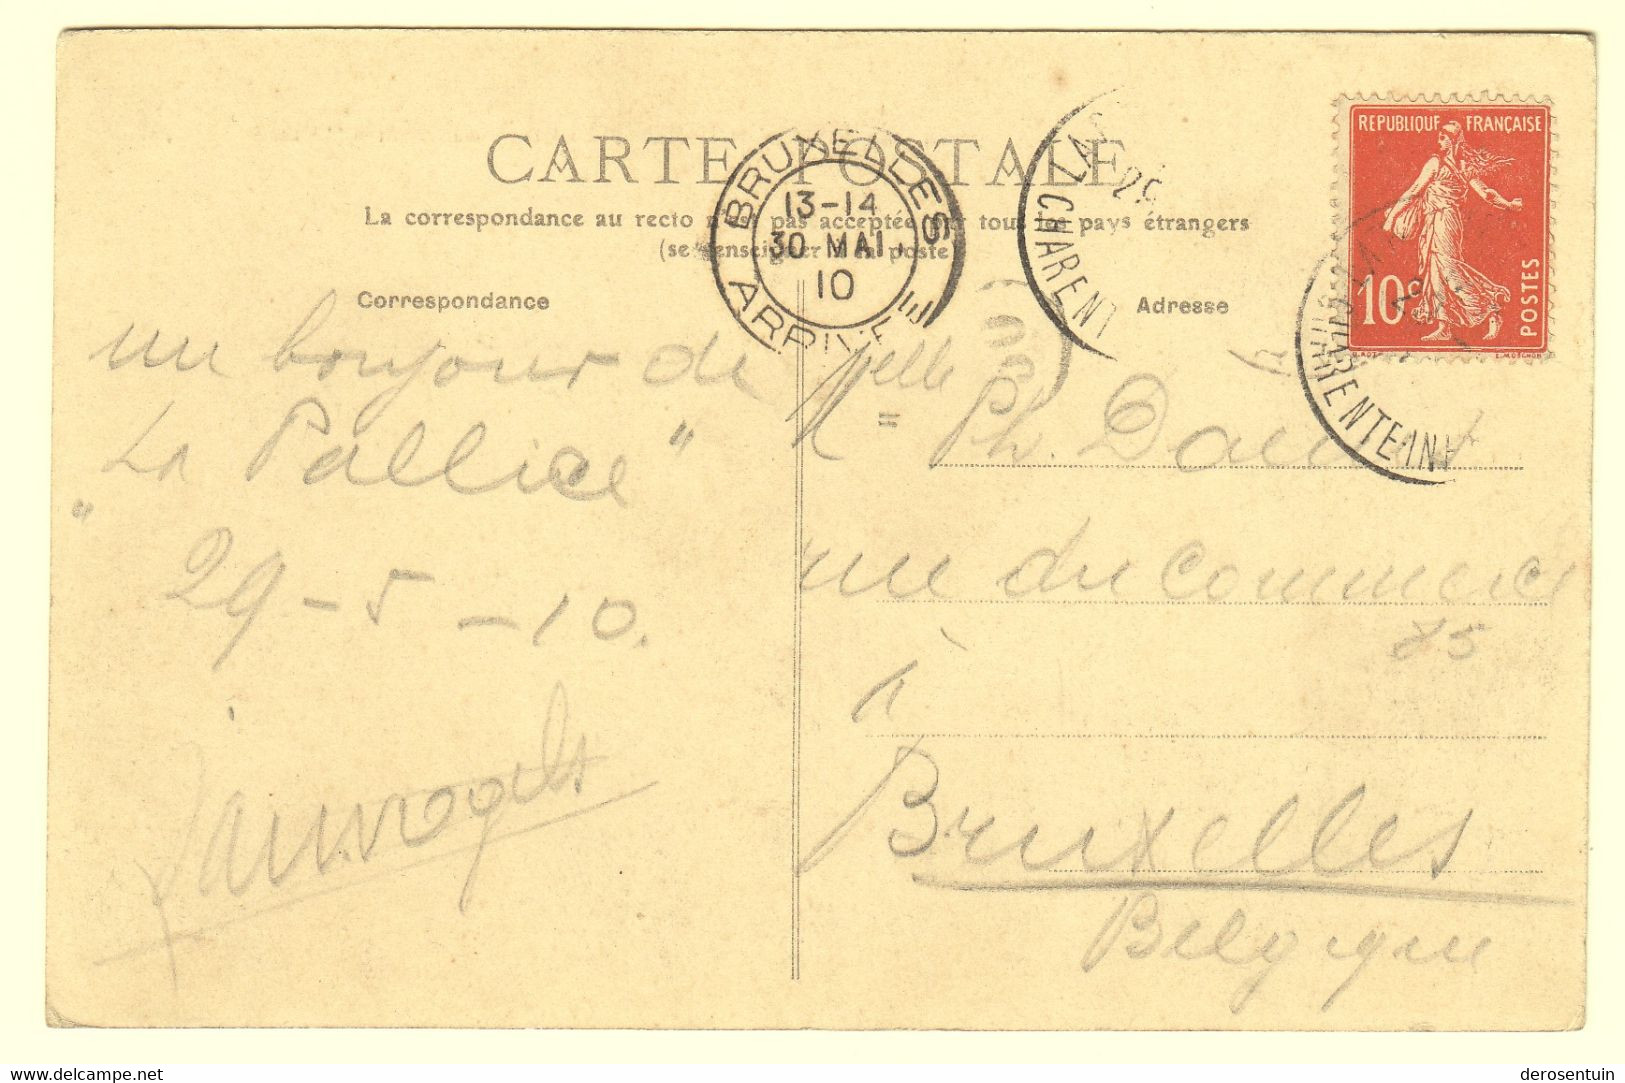 CARTE POSTALE
La correspondance au recto n'est pas acceptée par tous les pays étrangers
(se renseigner à la poste
Correspondance
Adresse
BRUXELLES
13-14
30 MAI
10
ARRIVEE
LA
CHARENT
REPUBLIQUE FRANÇAISE
10c
POSTES
CHARENTE INF
un bonjour de
"La Pallice"
29-5-10.
Melle Ph.
rue du Commerce
85
à
Bruxelles
Belgique
delcampe.net
derosentuin